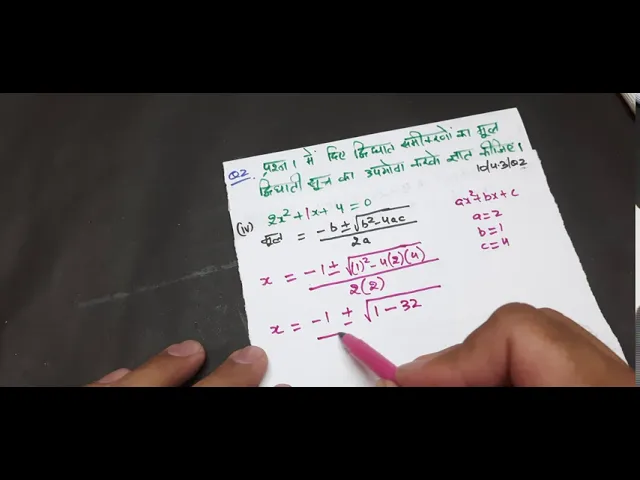 Q2. प्रश्न 1 में दिए द्विघात समीकरणों का मूल
द्विघाती सूत्र का उपयोग करके ज्ञात कीजिए।
10/4.3/Q2
(iv) 2x² + 1x + 4 = 0
मूल = -b ± √b² - 4ac / 2a
ax² + bx + c
a = 2
b = 1
c = 4
x = -1 ± √(1)² - 4(2)(4) / 2(2)
x = -1 ± √1 - 32